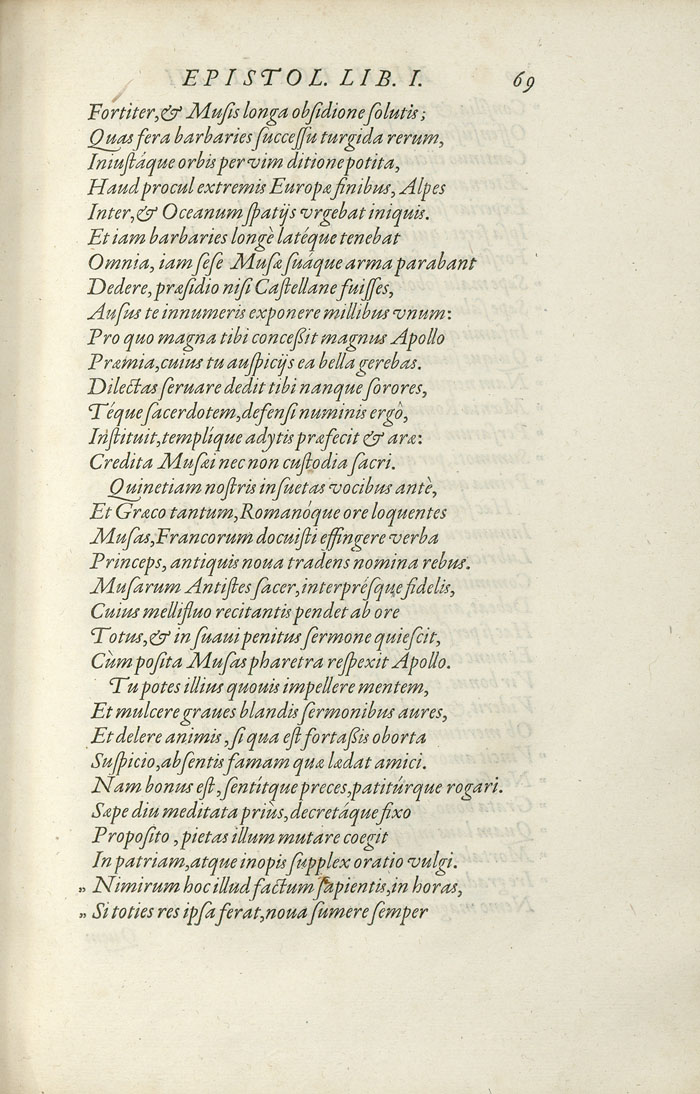 EPISTOL. LIB. I. 69
Fortiter, & Musis longa obsidione solutis;
Quas fera barbaries successu turgida rerum,
Iniustáque orbis per vim ditione potita,
Haud procul extremis Europæ finibus, Alpes
Inter, & Oceanum spatijs vrgebat iniquis.
Et iam barbaries longè latéque tenebat
Omnia, iam sese Musæ suáque arma parabant
Dedere, præsidio nisi Castellane fuisses,
Ausus te innumeris exponere millibus vnum:
Pro quo magna tibi concessit magnus Apollo
Præmia, cuius tu auspicijs ea bella gerebas.
Dilectas seruare dedit tibi nanque sorores,
Téque sacerdotem, defensi numinis ergô,
Instituit, templíque adytis præfecit & aræ:
Credita Musæi nec non custodia sacri.
Quinetiam nostris insuetas vocibus antè,
Et Græco tantum, Romanóque ore loquentes
Musas, Francorum docuisti effingere verba
Princeps, antiquis noua tradens nomina rebus.
Musarum Antistes sacer, interprésque fidelis,
Cuius mellifluo recitantis pendet ab ore
Totus, & in suaui penitus sermone quiescit,
Cùm posita Musas pharetra respexit Apollo.
Tu potes illius quouis impellere mentem,
Et mulcere graues blandis sermonibus aures,
Et delere animis, si qua est fortassis oborta
Suspicio, absentis famam quæ lædat amici.
Nam bonus est, sentítque preces, patitúrque rogari.
Sæpe diu meditata priùs, decretáque fixo
Proposito, pietas illum mutare coegit
In patriam, atque inopis supplex oratio vulgi.
„ Nimirum hoc illud factum sapientis, in horas,
„ Si toties res ipsa ferat, noua sumere semper